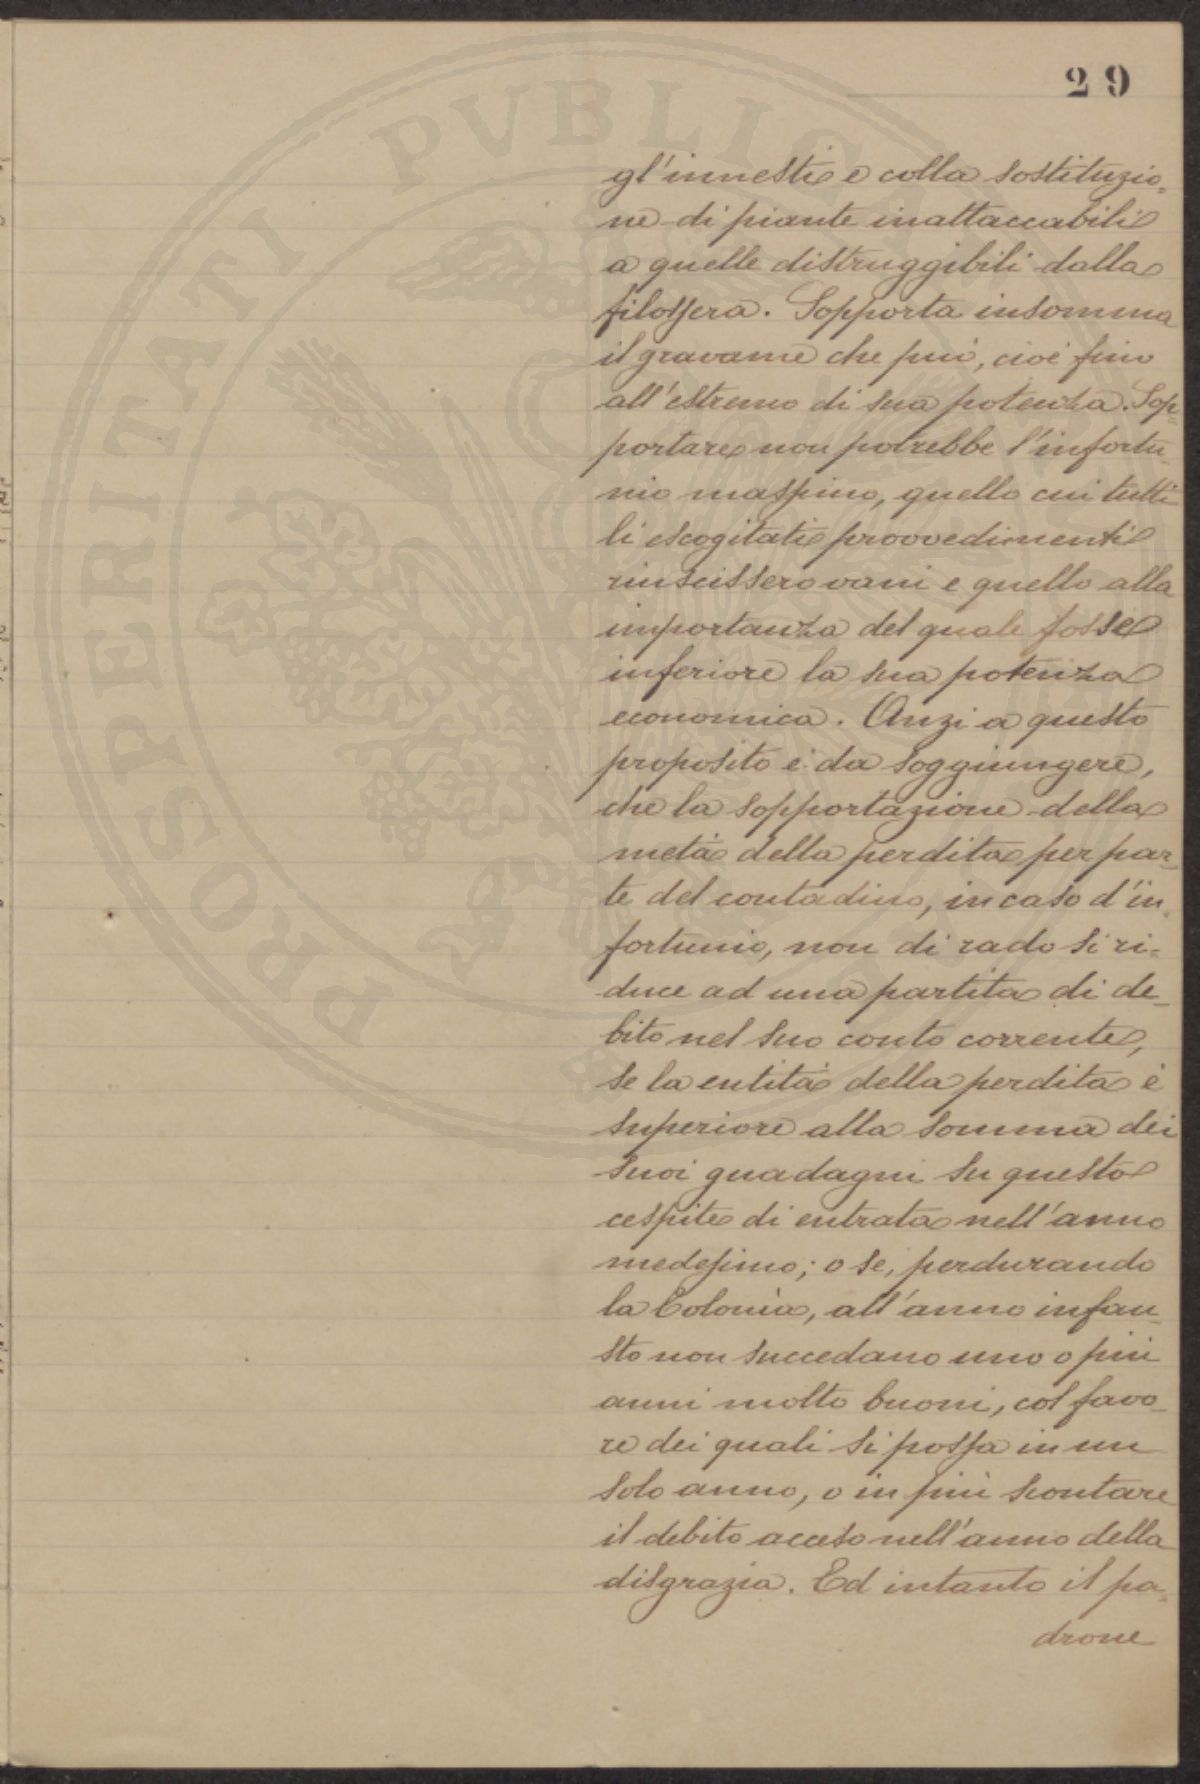 29
gl'innesti e colla sostituzio-
ne di piante inattaccabili
a quelle distruggibili dalla
filossera. Sopporta insomma
il gravame che può, cioè fino
all'estremo di sua potenza. Sop-
portare non potrebbe l'infortu-
nio massimo, quello cui tutti
li escogitati provvedimenti
riuscissero vani e quello alla
importanza del quale fosse
inferiore la sua potenza
economica. Anzi a questo
proposito è da soggiungere,
che la sopportazione della
metà della perdita per par-
te del contadino, in caso d'in-
fortunio, non di rado si ri-
duce ad una partita di de-
bito nel suo conto corrente,
se la entità della perdita è
superiore alla somma dei
suoi guadagni su questo
cespite di entrata nell'anno
medesimo; o se, perdurando
la Colonìa, all'anno infau-
sto non succedano uno o più
anni molto buoni, col favo-
re dei quali si possa in un
solo anno, o in più scontare
il debito acceso nell'anno della
disgrazia. Ed intanto il pa-
drone
PROSPERITATI PVBLICA